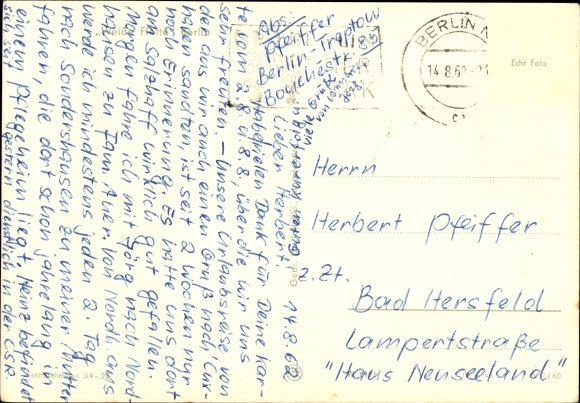 "Weiße Flotte" Berlin
Abs:
Pfeiffer
Berlin-Treptow
Bouchéstr. 85
BERLIN
14.8.62
Echt Foto
14.8.62
Lieber Herbert!
Hab vielen Dank für Deine Kar-
te vom 2.8. u. 8.8., über die wir uns
sehr freuten. – Unsere Urlaubsreise, von
der aus wir auch einen Gruß nach Cux-
haven sandten, ist seit 2 Wochen nur
noch Erinnerung. Es hatte uns dort
am Salzhaff wirklich gut gefallen.
Morgen fahre ich mit Jörg nach Nord-
hausen zu Fam. Auer. Von Nordh. aus
werde ich mindestens jeden 2. Tag
nach Sondershausen zu meiner Mutter
fahren, die dort schon jahrelang in
einem Pflegeheim liegt. Heinz befindet
sich seit gestern dienstlich in der CSR
viele Grüße
Herrn
Herbert Pfeiffer
z. Zt.
Bad Hersfeld
Lampertstraße
"Haus Neuseeland"